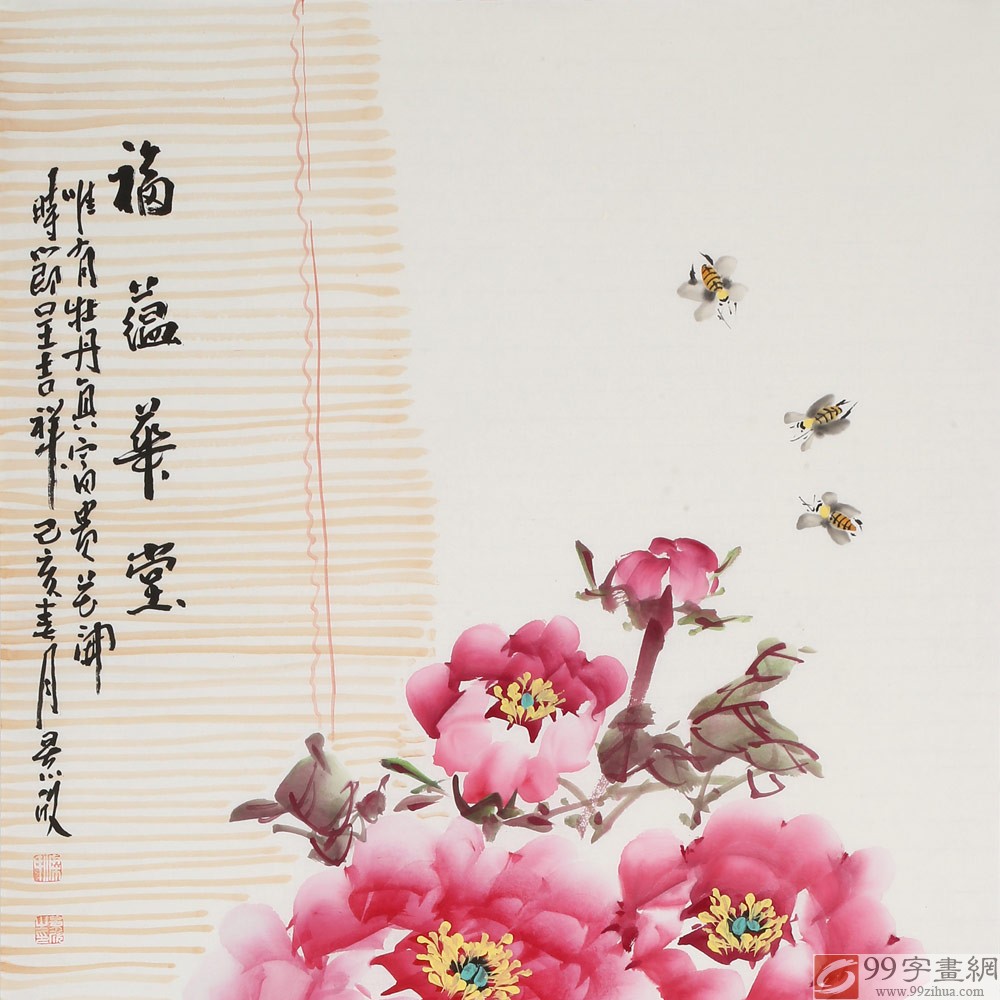 福蕴華堂
唯有牡丹真富贵花開
時節呈吉祥己亥春月景
99字畫網
www.99zihua.com